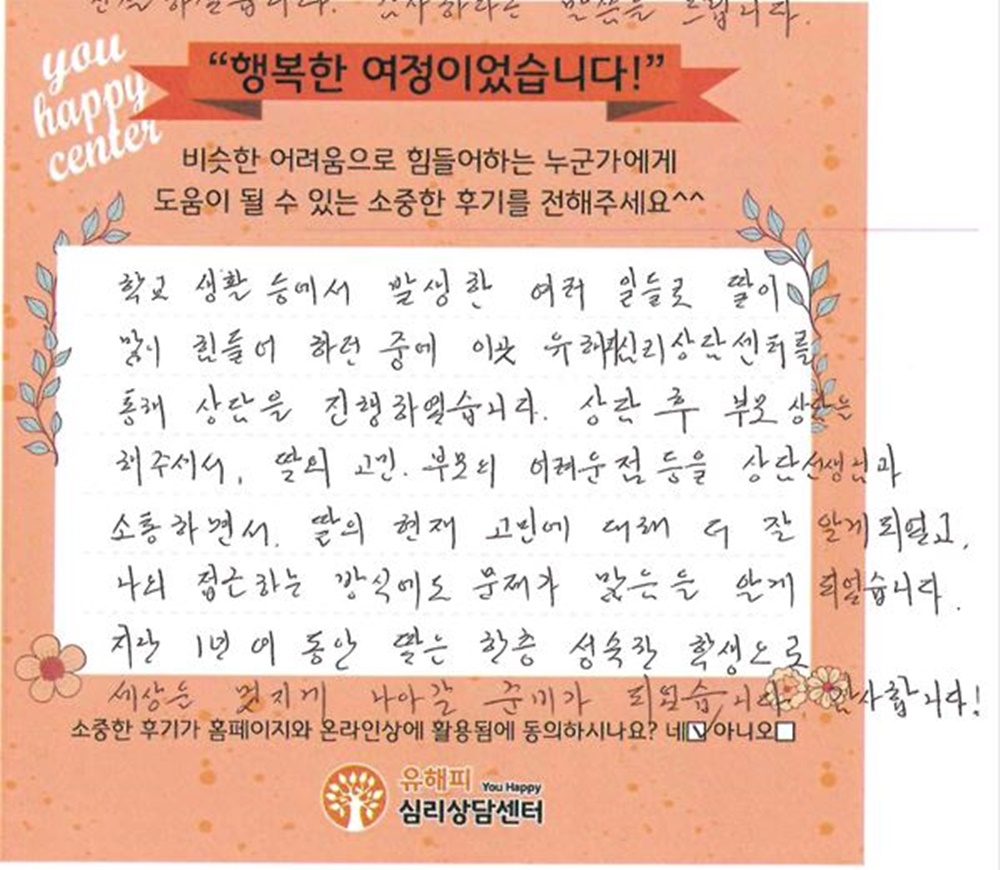 감사하다는 말씀을 드립니다.
you
happy
center
“행복한 여정이었습니다!”
비슷한 어려움으로 힘들어하는 누군가에게
도움이 될 수 있는 소중한 후기를 전해주세요^^
학교 생활 등에서 발생한 여러 일들로 딸이
많이 힘들어 하던 중에 이곳 유해피심리상담센터를
통해 상담을 진행하였습니다. 상담 후 부모 상담을
해주셔서, 딸의 고민. 부모의 어려운점 등을 상담선생님과
소통하면서. 딸의 현재 고민에 대해 더 잘 알게되었고,
나의 접근하는 방식에도 문제가 많음을 알게 되었습니다.
지난 1년 여 동안 딸은 한층 성숙한 학생으로
세상을 멋지게 나아갈 준비가 되었습니다. 감사합니다!
소중한 후기가 홈페이지와 온라인상에 활용됨에 동의하시나요? 네☑ 아니오☐
유해피 You Happy
심리상담센터